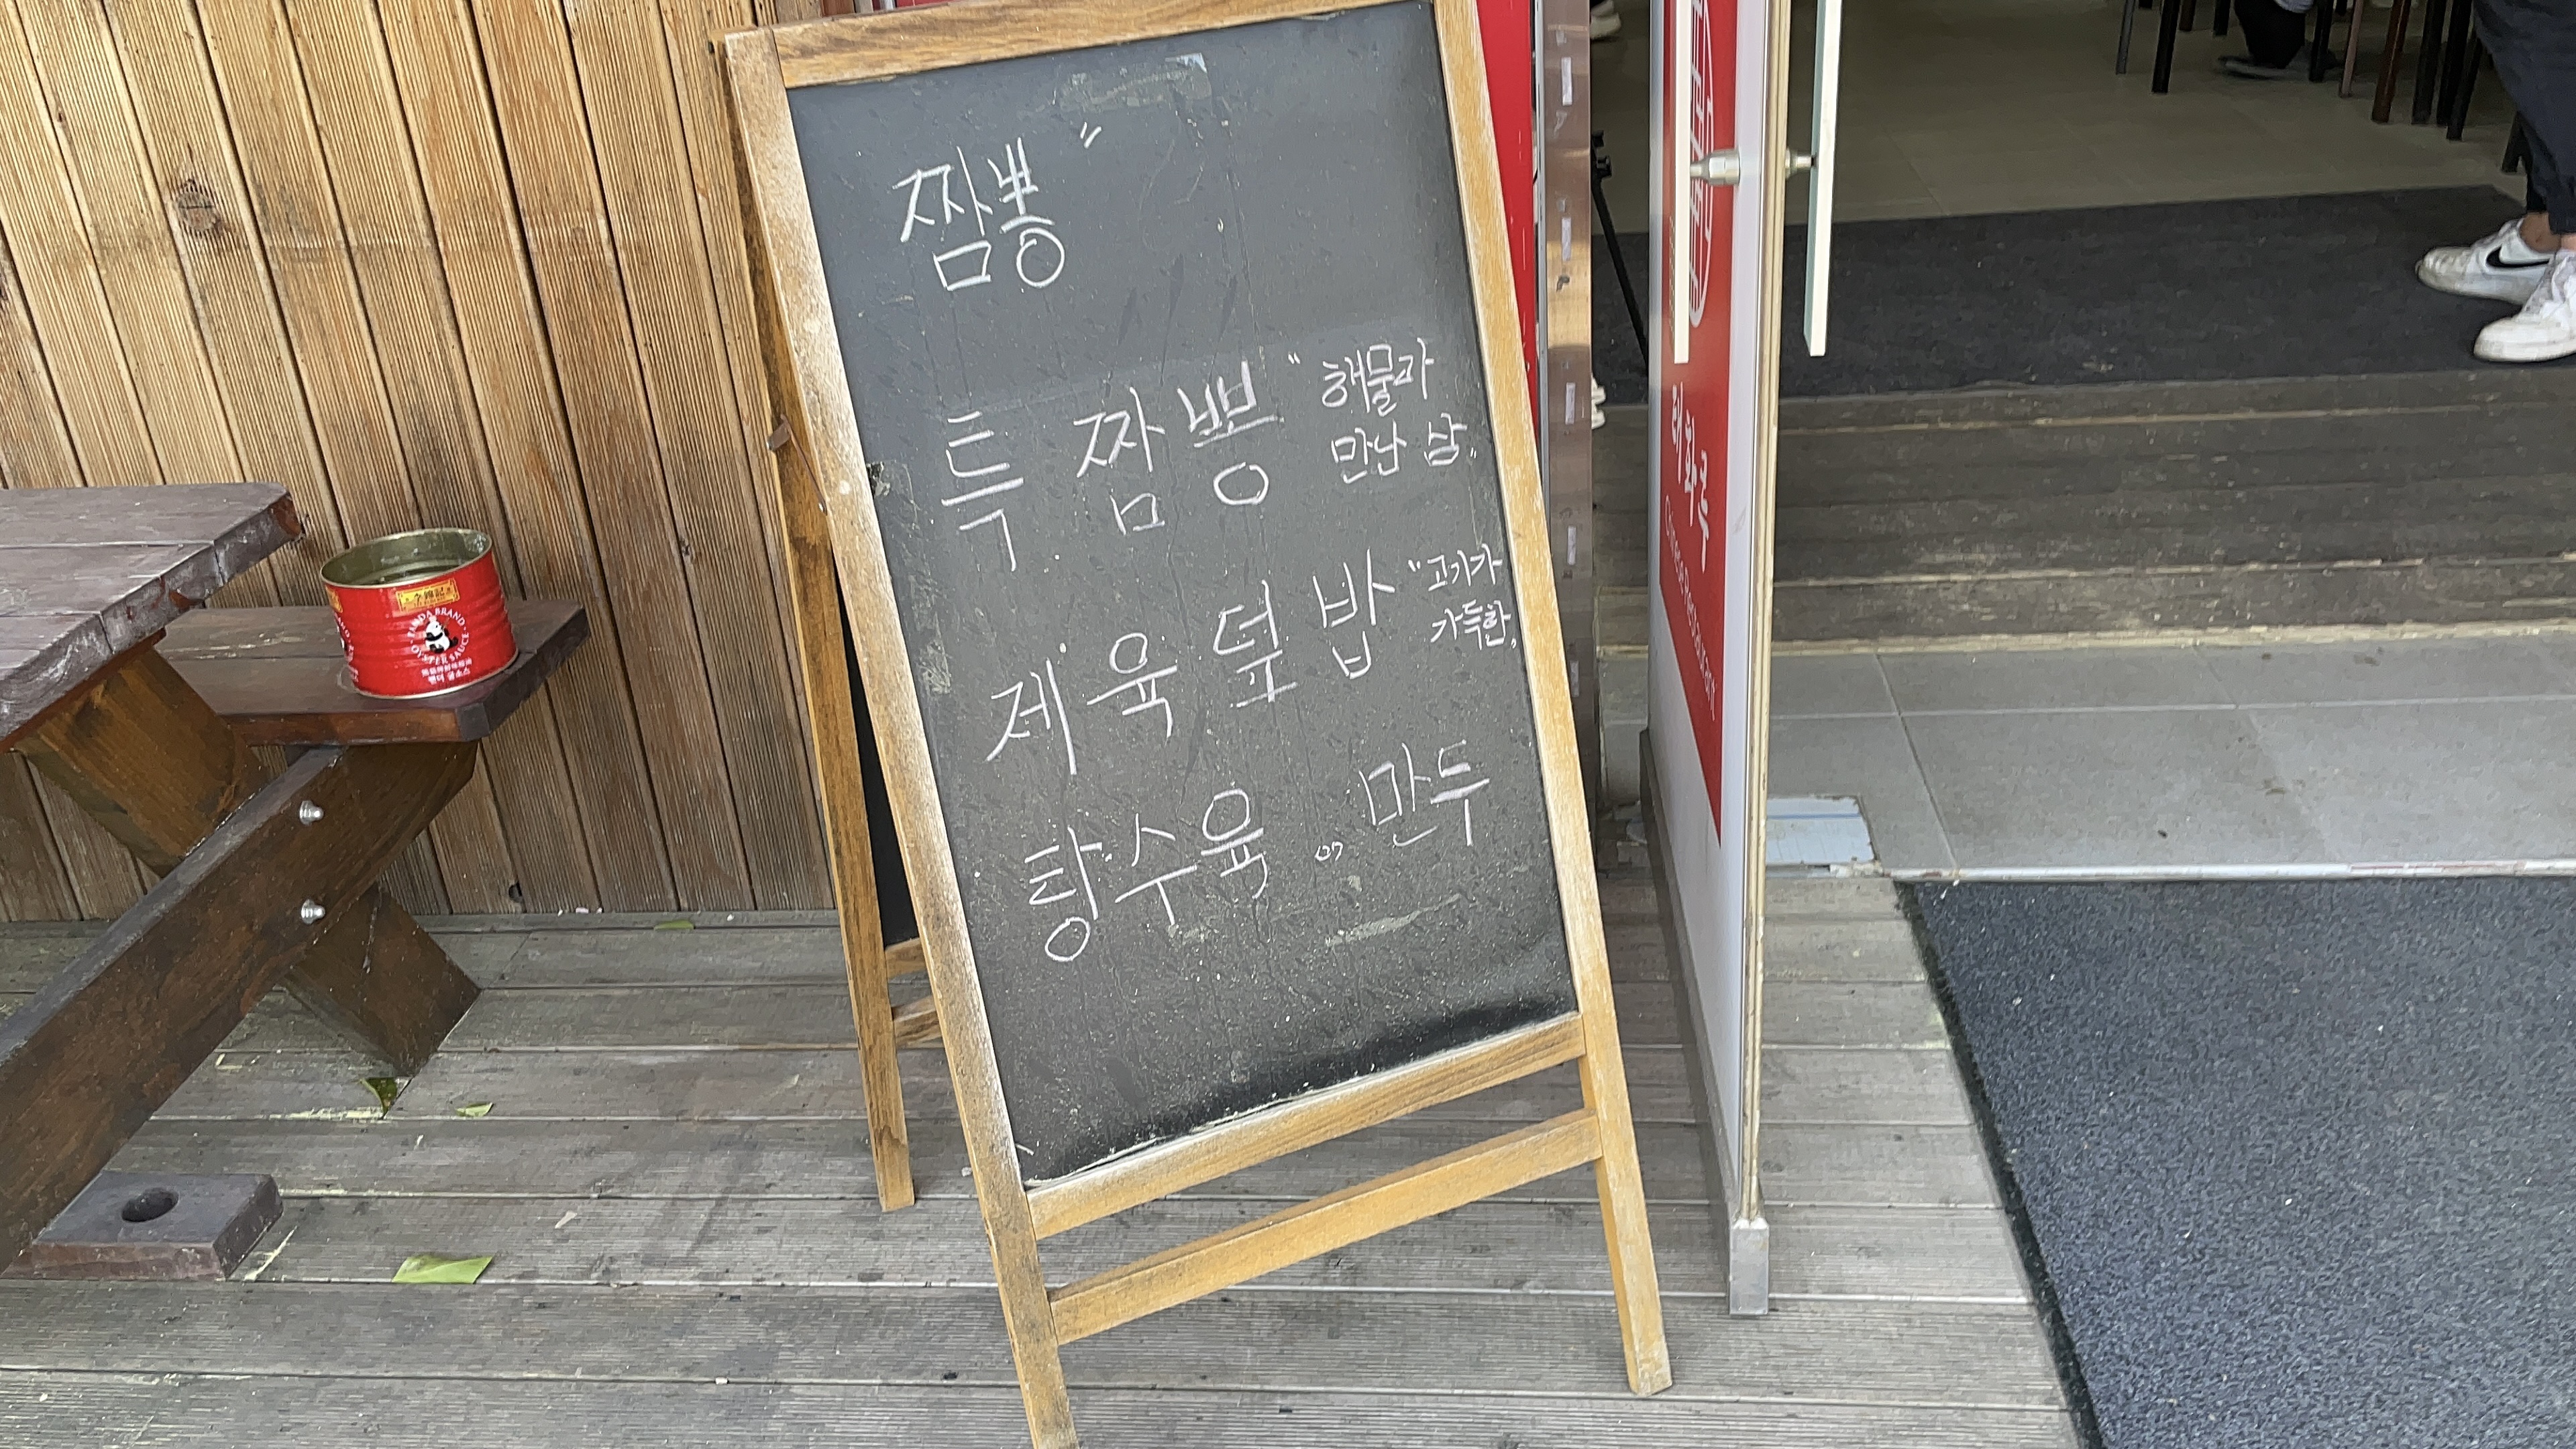 짬뽕 "
특 짬뽕 "해물과
만난 남"
제육덮밥 "고기가
가득한"
탕수육 or 만두
PANDA BRAND
OYSTER SAUCE
팬더 굴소스
태화루
Chinese Restaurant